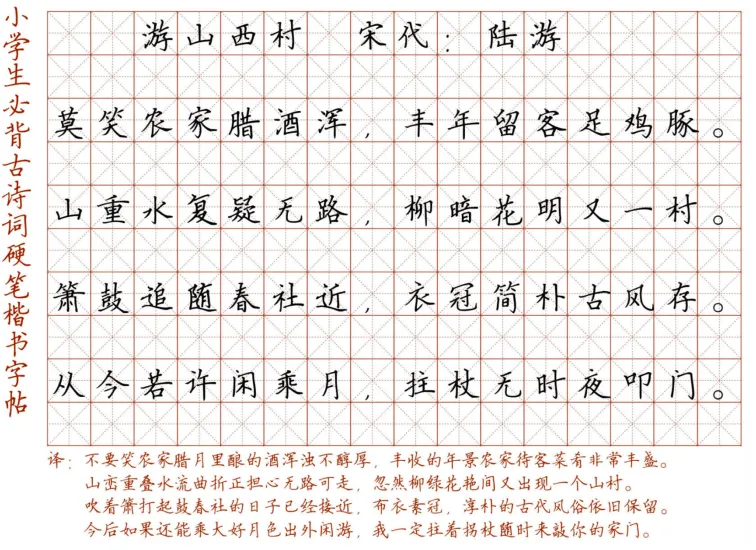 小学生必背古诗词硬笔楷书字帖
游山西村 宋代：陆游
莫笑农家腊酒浑，丰年留客足鸡豚。
山重水复疑无路，柳暗花明又一村。
箫鼓追随春社近，衣冠简朴古风存。
从今若许闲乘月，拄杖无时夜叩门。
译：不要笑农家腊月里酿的酒浑浊不醇厚，丰收的年景农家待客菜肴非常丰盛。
山峦重叠水流曲折正担心无路可走，忽然柳绿花艳间又出现一个山村。
吹着箫打起鼓春社的日子已经接近，布衣素冠，淳朴的古代风俗依旧保留。
今后如果还能乘大好月色出外闲游，我一定拄着拐杖随时来敲你的家门。